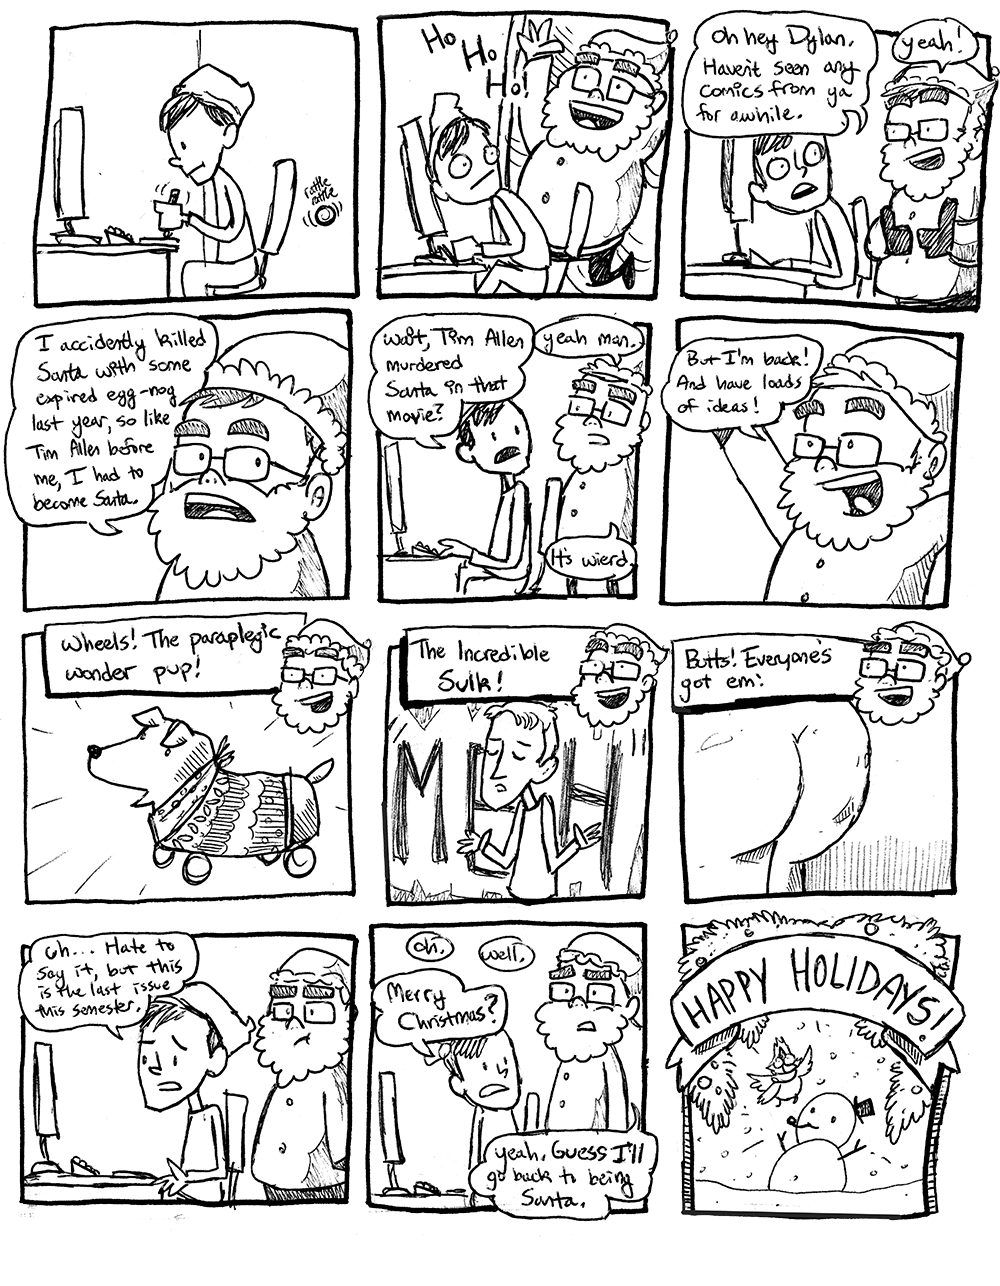 rattle
rattle
Ho
Ho
Ho!
Oh hey Dylan.
Haven't seen any
comics from ya
for awhile.
yeah!
I accidently killed
Santa with some
expired egg-nog
last year, so like
Tim Allen before
me, I had to
become Santa.
wait, Tim Allen
murdered
Santa in that
movie?
yeah man.
It's wierd.
But I'm back!
And have loads
of ideas!
Wheels! The paraplegic
wonder pup!
The Incredible
Sulk!
MEH
Butts! Everyone's
got em!
Uh... Hate to
say it, but this
is the last issue
this semester.
Oh.
well,
Merry
Christmas?
yeah. Guess I'll
go back to being
Santa.
HAPPY HOLIDAYS!